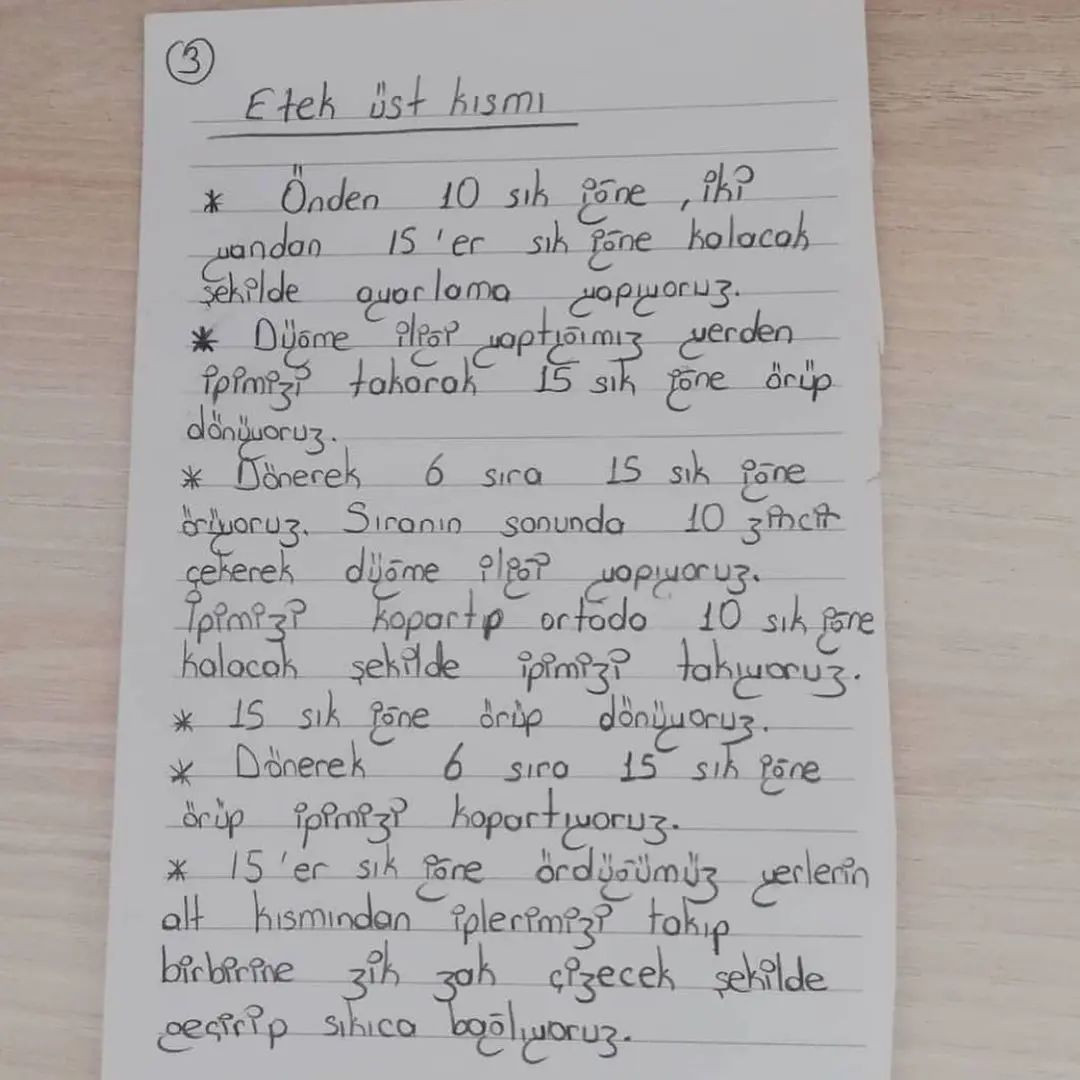 3
Etek üst kısmı
* Önden 10 sık iğne, iki
yandan 15'er sık iğne kalacak
şekilde ayarlama yapıyoruz.
* Düğme iliği yaptığımız yerden
ipimizi takarak 15 sık iğne örüp
dönüyoruz.
* Dönerek 6 sıra 15 sık iğne
örüyoruz. Sıranın sonunda 10 zincir
çekerek düğme iliği yapıyoruz.
İpimizi kopartıp ortada 10 sık iğne
kalacak şekilde ipimizi takıyoruz.
* 15 sık iğne örüp dönüyoruz.
* Dönerek 6 sıra 15 sık iğne
örüp ipimizi kopartıyoruz.
* 15'er sık iğne ördüğümüz yerlerin
alt kısmından iplerimizi takıp
birbirine zik zak çizecek şekilde
geçirip sıkıca bağlıyoruz.